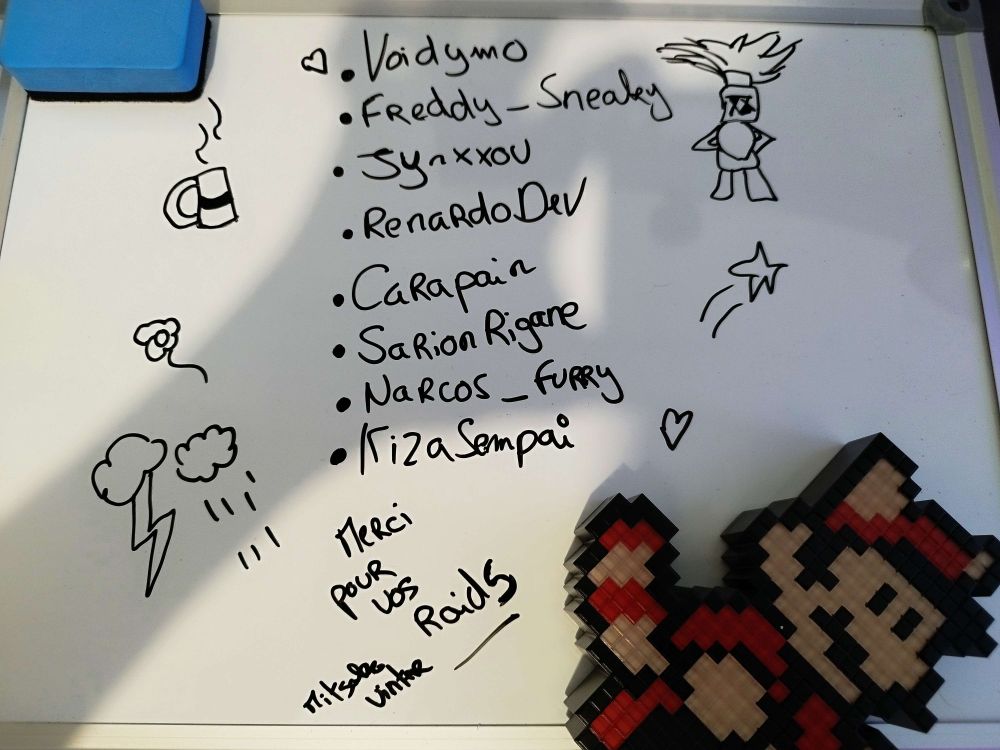 • Voidymo
• Freddy_Sneaky
• Jynxxou
• RenardoDev
• Carapain
• SarionRigane
• Narcos_Furry
• KizaSempai
Merci
pour
vos
Raids